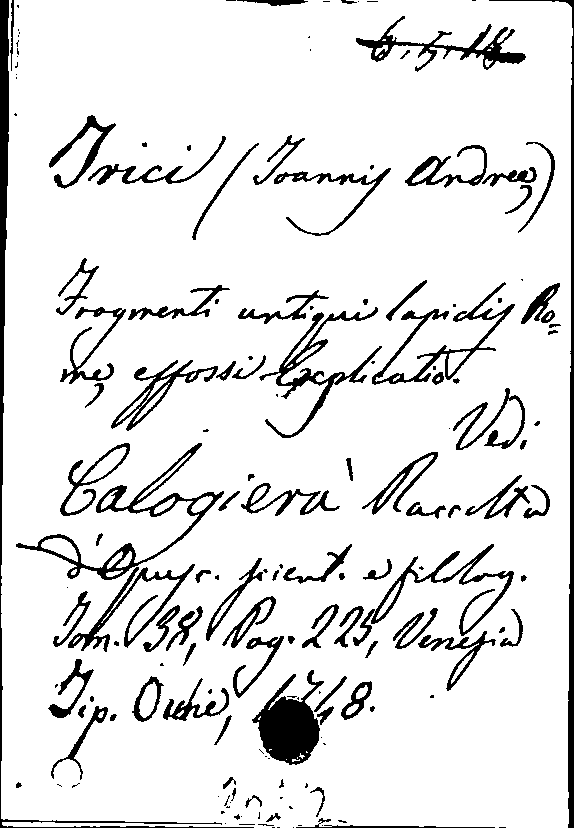 6.5.18
Irici (Joannis Andreæ)
Fragmenti antiqui lapidis Ro=
mæ effossi Explicatio.
Vedi
Calogierà Raccolta
d'Opusc. scient. e filolog.
Tom. 38, Pag. 225, Venezia
Tip. Occhi, 1748.